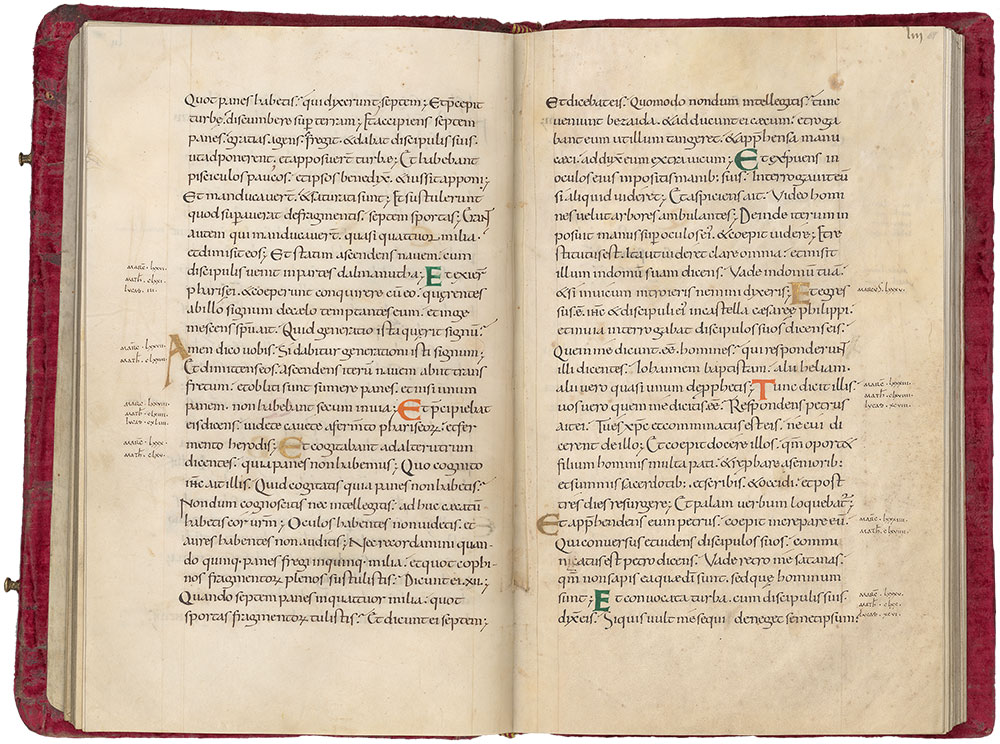 Quot panes habetis. qui dyxerunt septem; Et p̄cepit
turbę. discumbere sup terram; Et accipiens septem
panes. gratias agens. fregit. & dabat discipulis suis.
ut adponerent. et apposuer̄ turbę; Et habebant
pisciculos paucos. et ipsos benedyx̄. & iussit apponi;
Et manducauer̄. & saturati sunt; Et sustulerunt
quod supauerat defragmentis. septem sportas;
autem qui manducauer̄. quasi quattuor milia.
et dimisit eos; Et statim ascendens nauem. cum
discipulis uenit in partes dalmanutha; Et exier̄
pharisei. & coeperunt conquirere cū eo. quęrentes
ab illo signum decęlo temptantes eum. et inge
mescens sp̄u. ait. Quid generatio ista quęrit signū.
Amen dico uobis. Si dabitur generationi isti signum;
Et dimittens eos. ascendens iterū nauem abiit trans
fretum. et obliti sunt sumere panes. et nisi unum
panem. non habebant secum in naui; Et p̄cipiebat
eis dicens. uidete cauete afermto phariseoꝝ. et fer
mento herodis; Et cogitabant adalterutrum
dicentes. quia panes non habemus; Quo cognito
ih̄c ait illis. Quid cogitatis quia panes non habetis.
Nondum cognoscitis nec intellegitis. ad huc cęcatū
habetis cor ur̄m; Oculos habentes non uidetis. et
aures habentes non auditis; Nec recordamini quan
do quinq; panes fregi in quinq; milia. et quot cophi
nos fragmentoꝝ plenos sustulistis. Dicunt ei. xii;
Quando septem panes in quattuor milia. quot
sportas fragmentoꝝ tulistis. Et dicunt ei septem;
marc̄. lxxvi.
math̄. clxi.
lucas. iii.
marc̄. lxxvii.
math̄. clxiii.
marc̄. lxxviiii.
math̄. clxiiii.
lucas. cxliiii.
marc̄. lxxx.
math̄. clxv.
liii
Et dicebat eis. Quomodo nondum intellegitis. tunc
ueniunt bezaida. & adducunt ei cęcum. et roga
bant eum ut illum tangeret. & appħensa manu
cęci. addyx̄ eum extra uicum; Et expuens in
oculos eius impositis manib; suis. Interrogauit eū
si aliquid uideret; Et aspiciens ait. Video homi
nes uelut arbores ambulantes; Deinde iterum in
posuit manus sup oculos ei'. & coepit uidere; Et re
stitutus est. Ita ut uideret clare omnia. et misit
illum in domū suam dicens. Vade in domū tuā.
& si in uicum introieris nemini dyxeris; Et egres
sus ē ih̄c & discipuli ei' in castella cesareę philippi.
et in uia interrogabat discipulos suos dicens eis.
Quem me dicunt eē homines. qui responderunt
illi dicentes. Iohannem baptistam. alii heliam.
alii uero quasi unum de ꝓphetis; Tunc dicit illis.
uos uero quem me dicitis eē. Respondens petrus
ait ei. Tu es xp̄c et comminatus est eis. ne cui di
cerent de illo; Et coepit docere illos. qm̄ oport&
filium hominis multa pati. & reꝓbari a seniorib;
et summis sacerdotib; et scribis. & occidi. et post
tres dies resurgere; Et palam uerbum loquebatr̄;
Et appħendens eum petrus. coepit increpare eū.
Qui conuersus et uidens discipulos suos. commi
natus est petro dicens. Vade retro me satanas.
qm̄ non sapis ea quę dī sunt. sed que hominum
sunt; Et conuocata turba. cum discipulis suis
dyx̄ eis. Si quis uult me sequi deneget semetipsum.
marcus. lxxxi.
marc̄. lxxxii.
math̄. clxvi.
lucas. xcviii.
marc̄. lxxxiii.
math̄. clxviii.
marc̄. lxxxv.
math̄. clxx.
lucas. xcvi.